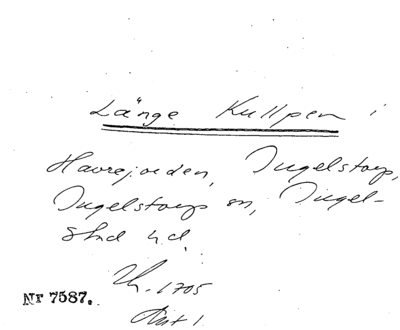 Länge Kullpen i
Havrejorden, Ingelstorp,
Ingelstorps sn, Ingel-
stad hd.
1705
Nr 7587.